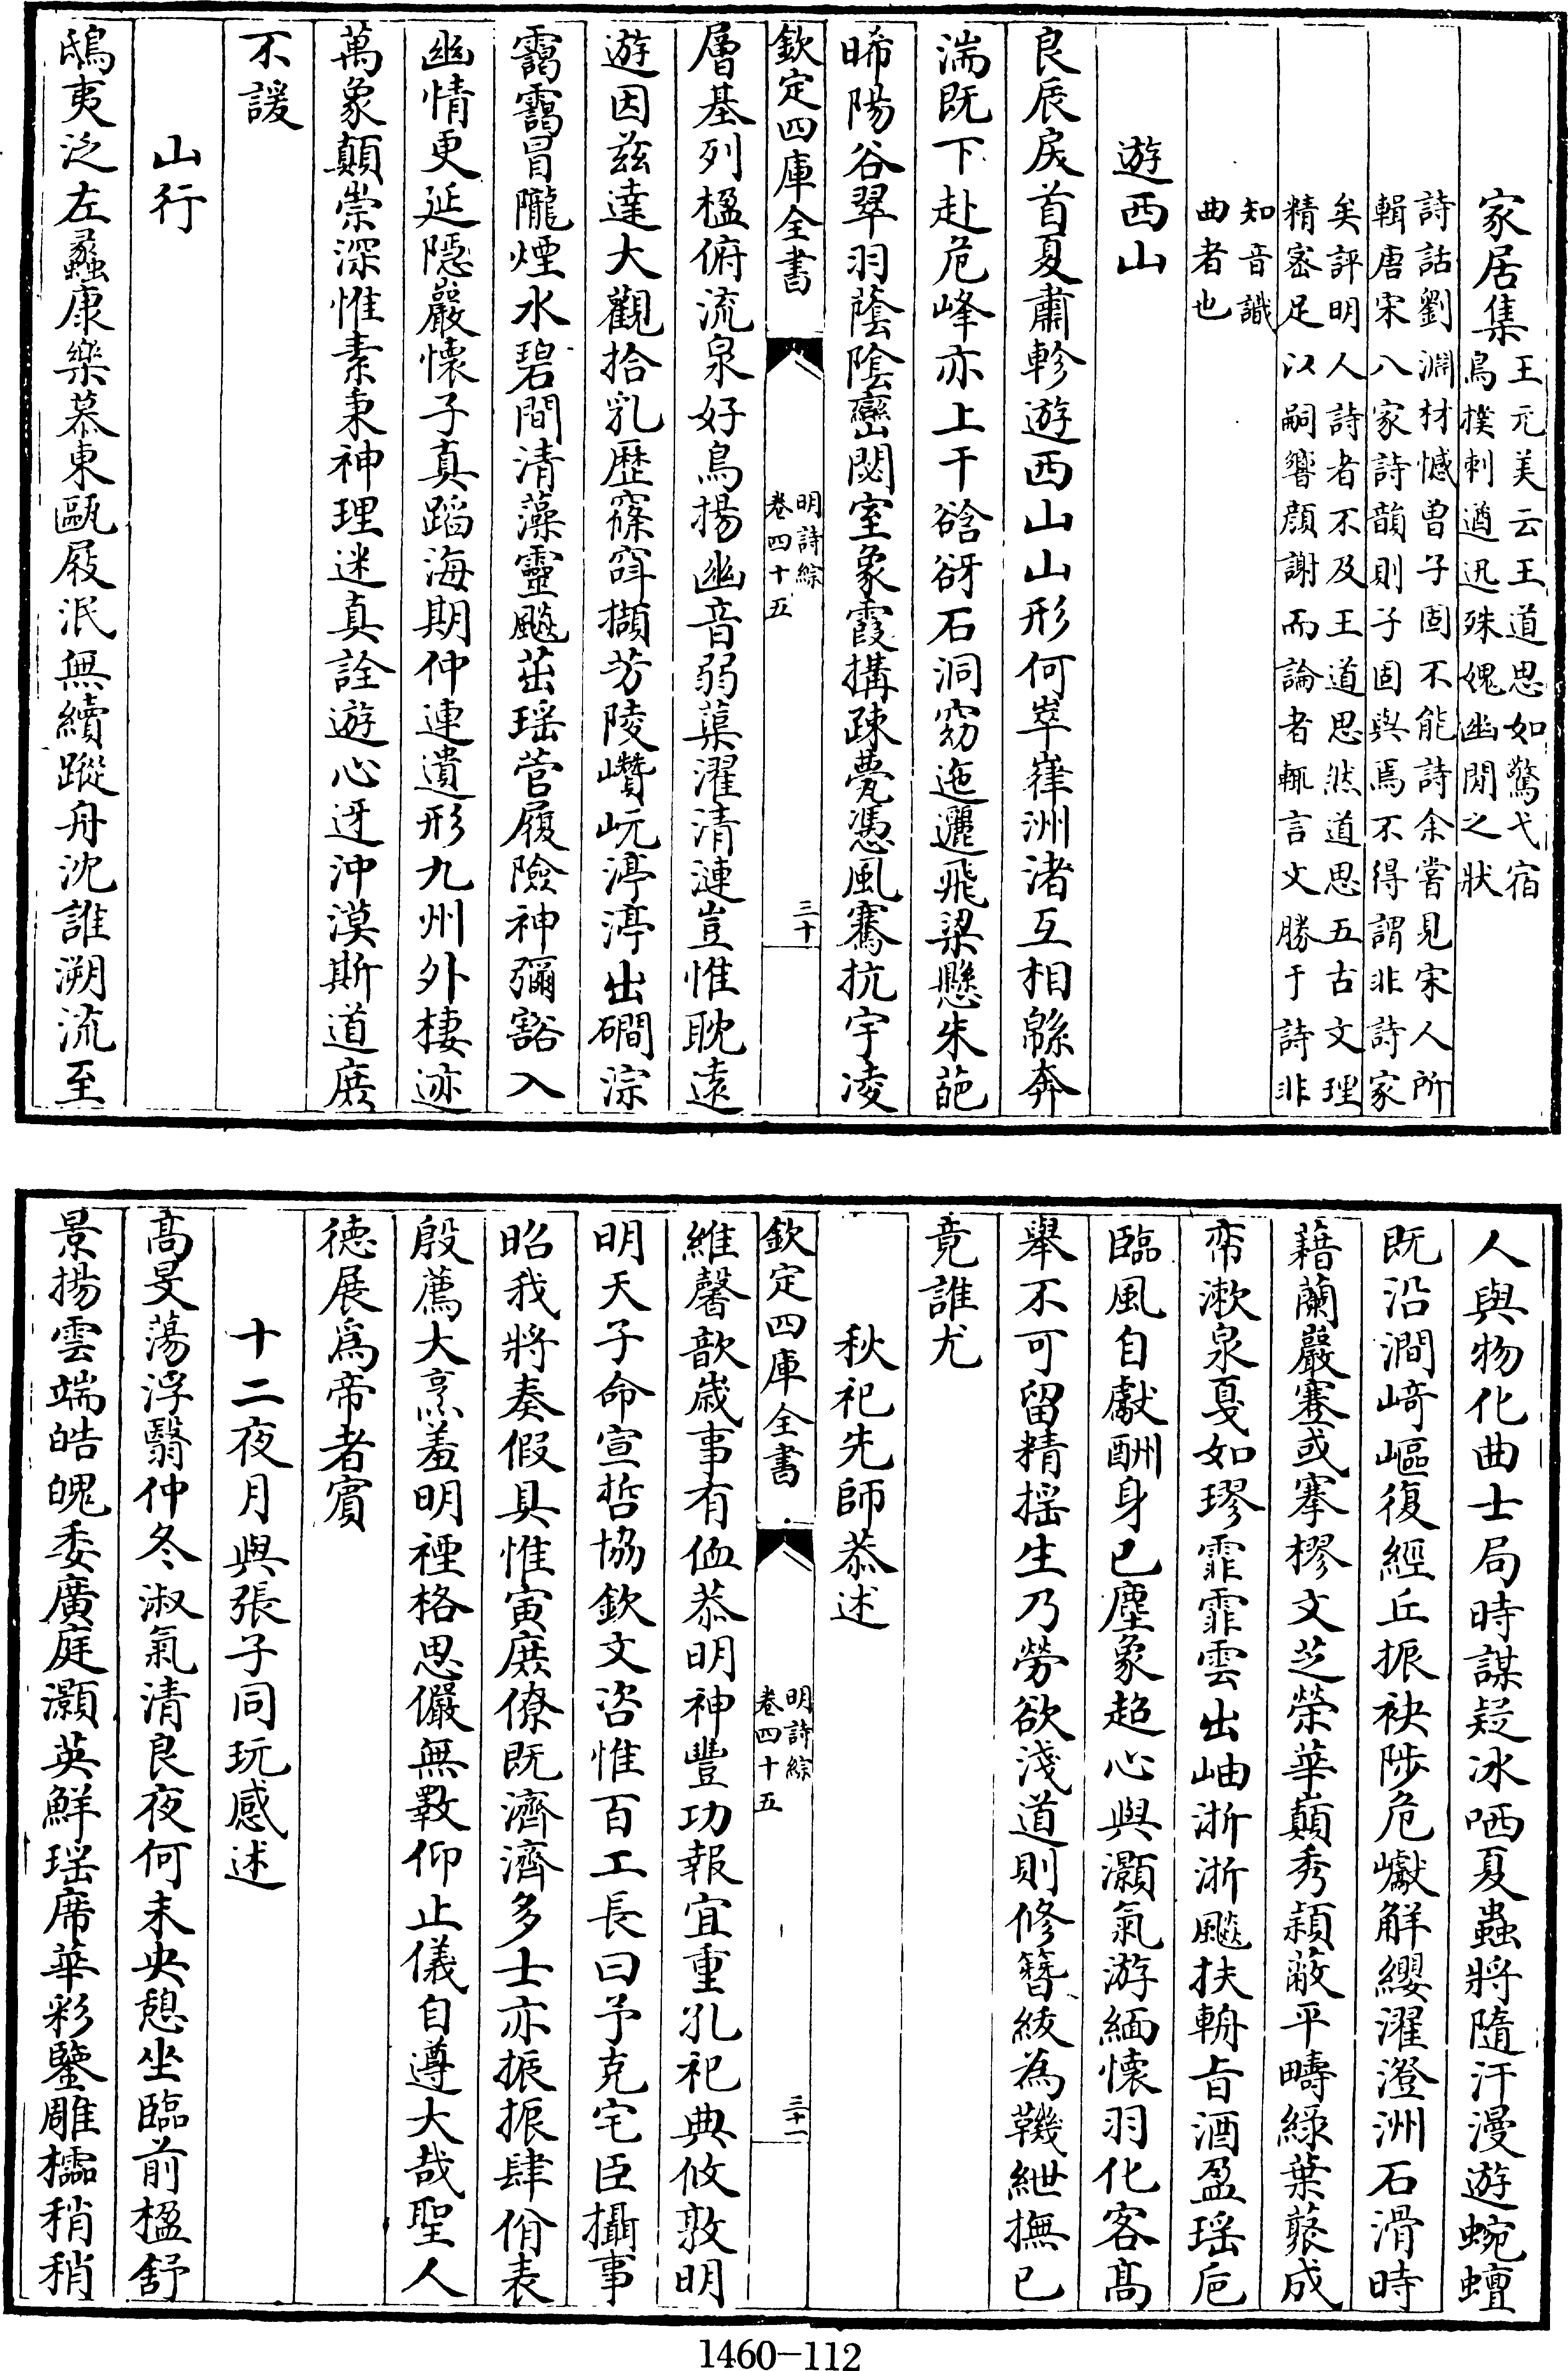 家居集王元美云王道思如驚弋宿
鳥撲刺遒迅殊媿幽閒之狀
詩話劉淵材憾曾子固不能詩余嘗見宋人所
輯唐宋八家詩韻則子固與焉不得謂非詩家
矣評明人詩者不及王道思然道思五古文理
精密足以嗣響顏謝而論者輒言文勝于詩非
知音識
曲者也
遊西山
良辰戾首夏肅軫遊西山山形何崒嵂洲渚互相緜奔
湍既下赴危峰亦上干谽谺石洞窈迤邐飛梁懸朱葩
晞陽谷翠羽蔭陰巒閟室象霞搆疎甍憑風騫抗宇凌
欽定四庫全書
明詩綜
卷四十五
三十
層基列楹俯流泉好鳥揚幽音弱蕖濯清漣豈惟耽遠
遊因茲達大觀拾乳歷窱窙擷芳陵巑岏渟渟出磵淙
靄靄冒隴煙水碧間清藻靈飈茁瑶菅履險神彌豁入
幽情更延隱巖懷子真蹈海期仲連遺形九州外棲迹
萬象顛崇深惟素秉神理迷真詮遊心迓沖漠斯道庶
不諼
山行
鴟夷泛左蠡康樂慕東甌屐泯無續蹤舟沈誰溯流至
人與物化曲士局時謀疑冰哂夏蟲將隨汗漫遊蜿蟺
既沿澗崎嶇復經丘振袂陟危巘解纓濯澄洲石滑時
藉蘭巖蹇或搴樛文芝榮華巔秀穎蔽平疇綠葉蕤成
帟漱泉戛如璆霏霏雲出岫浙浙飈扶輈旨酒盈瑶巵
臨風自獻酬身已塵象超心與灝氣游緬懷羽化客高
舉不可留精摇生乃勞欲淺道則修簪紱為鞿紲撫已
竟誰尤
秋祀先師恭述
欽定四庫全書
明詩綜
卷四十五
三十一
維馨歆歲事有侐恭明神豐功報宜重孔祀典攸敦明
明天子命宣哲協欽文咨惟百工長曰予克宅臣攝事
昭我將奏假具惟寅庶僚既濟濟多士亦振振肆佾表
殷薦大烹羞明禋格思儼無斁仰止儀自遵大哉聖人
徳展爲帝者賓
十二夜月與張子同玩感述
高旻蕩浮翳仲冬淑氣清良夜何未央憩坐臨前楹舒
景揚雲端皓魄委廣庭灝英鮮瑶席華彩鑒雕櫺稍稍
1460-112